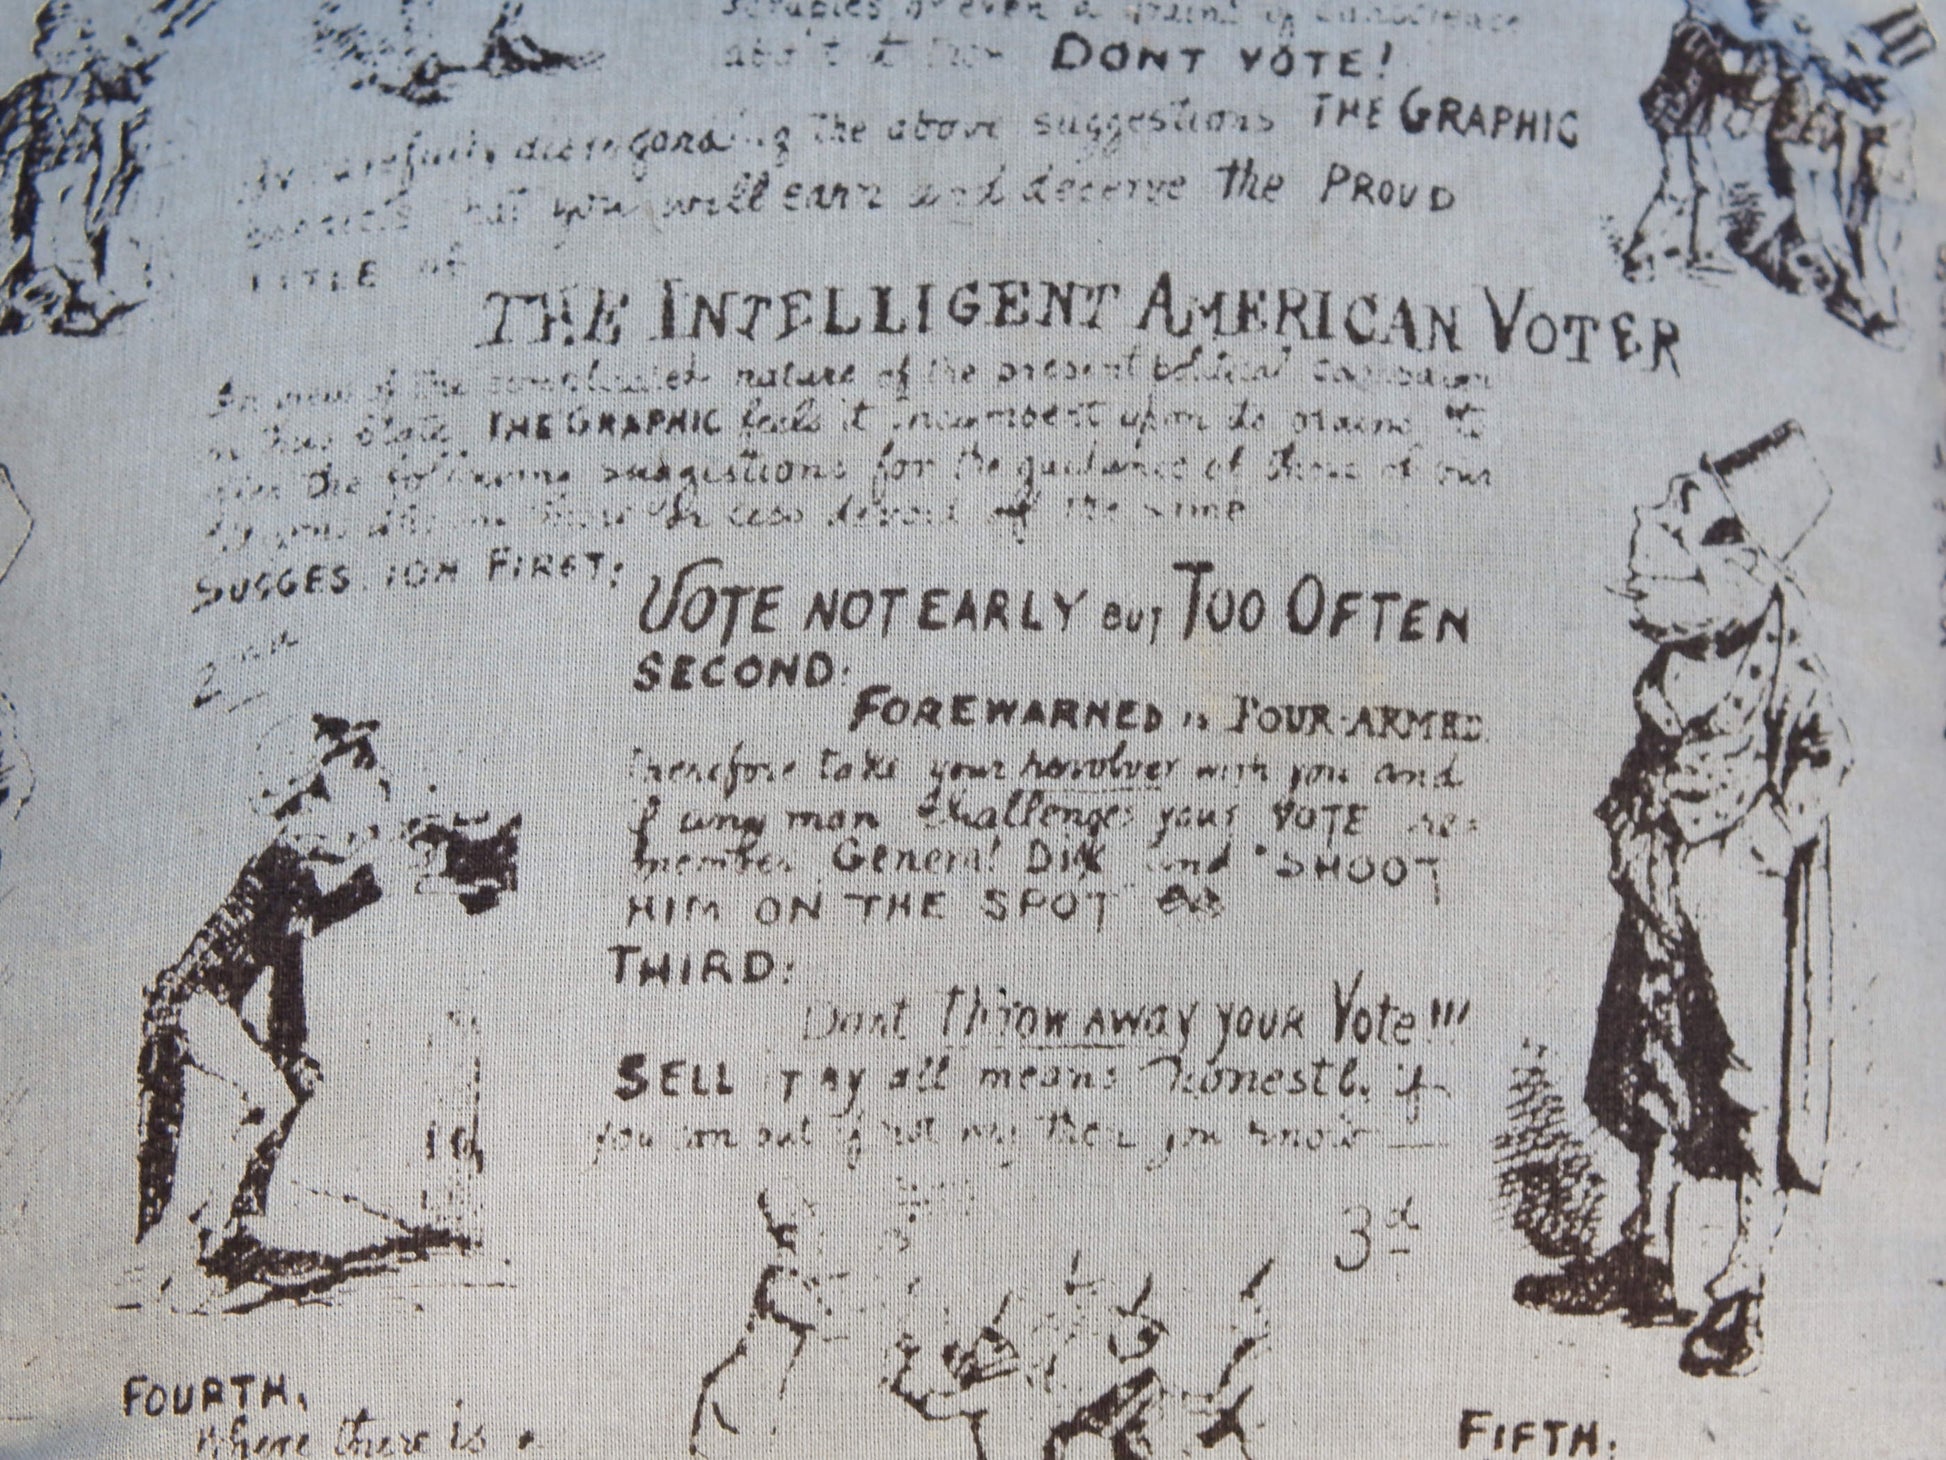 scruples or even a grain of conscience
about it then DONT VOTE!
By carefully disregarding the above suggestions THE GRAPHIC
that you will earn and deserve the PROUD
TITLE of
THE INTELLIGENT AMERICAN VOTER
In view of the complicated nature of the present political campaign
in this State THE GRAPHIC feels it incumbent upon its brains to
give the following suggestions for the guidance of those of our
devoid of the same
SUGGESTION FIRST:
VOTE NOT EARLY BUT TOO OFTEN
2nd
SECOND:
FOREWARNED is FOUR-ARMED
therefore take your revolver with you and
if any man challenges your VOTE re-
member General DIX and "SHOOT
HIM ON THE SPOT"
THIRD:
Dont throw AWAY YOUR Vote!!!
SELL IT by all means honestly if
you can but if not why then you know
3d
FOURTH.
Where there is a
FIFTH.